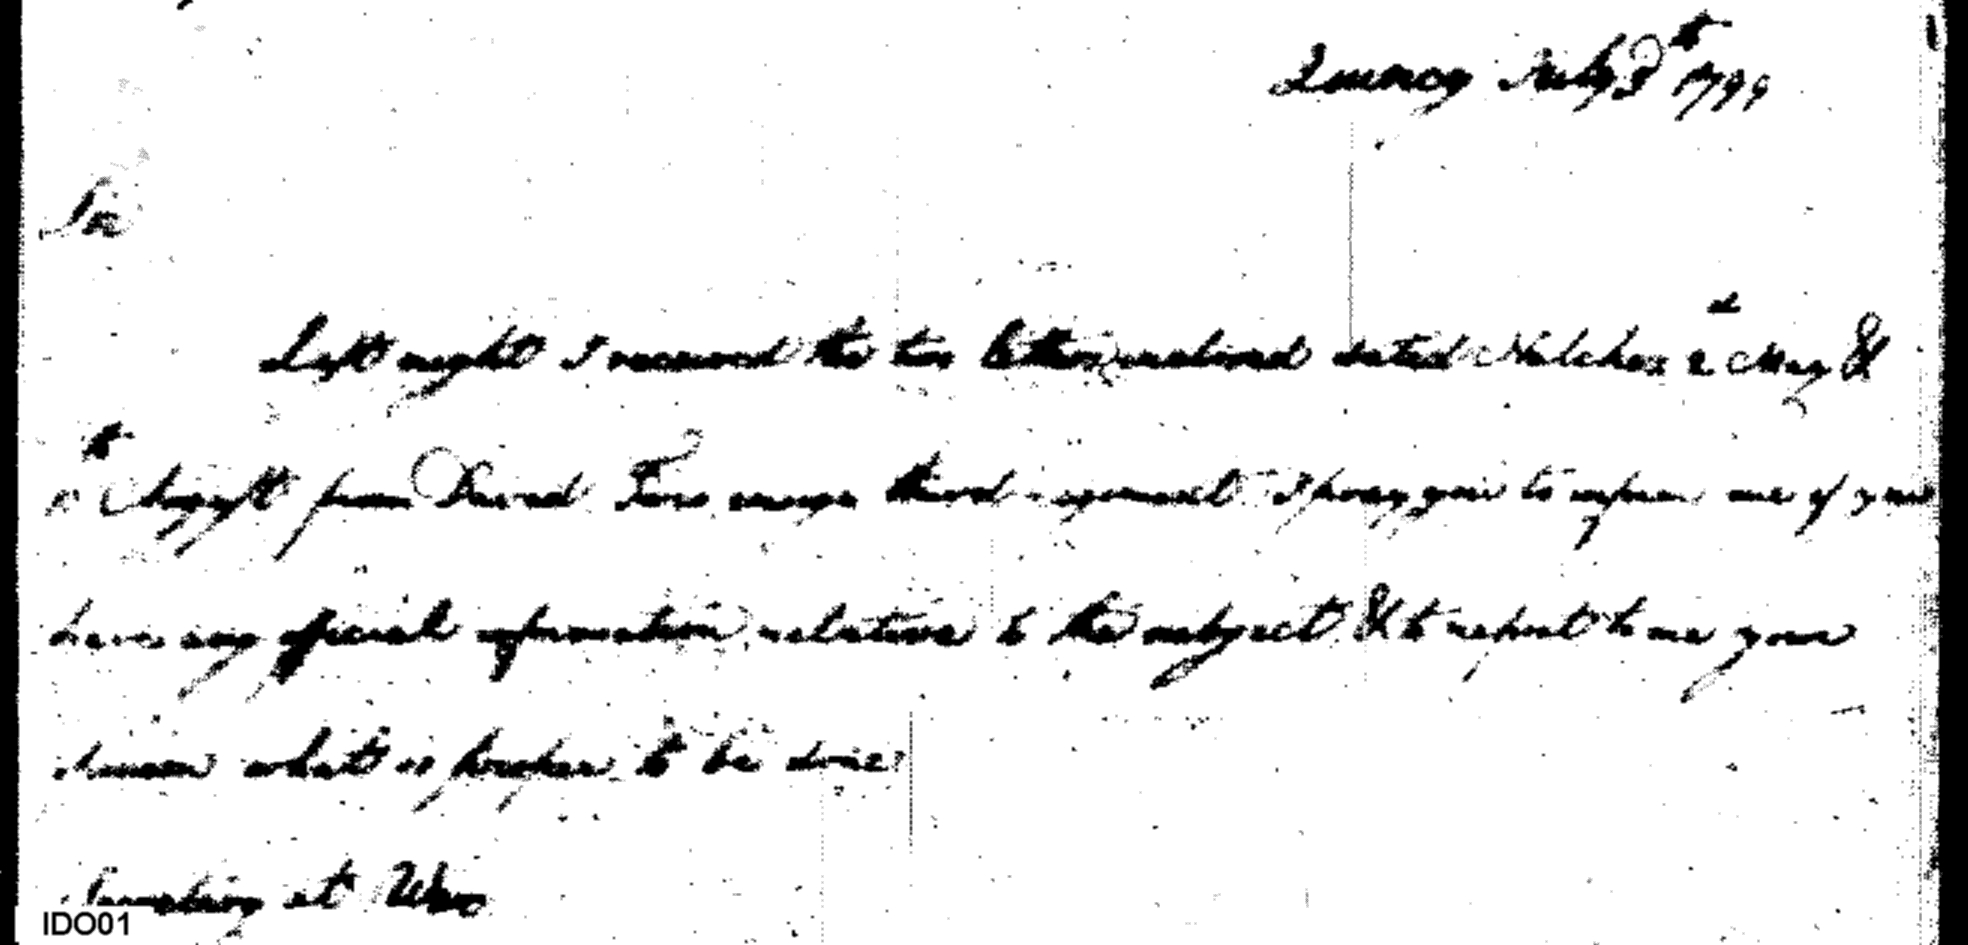 Quincy July 8th 1799
Sir
Last night I received the two letters inclosed dated Natchez 2d May &
th August from David third regiment I pray you to inform me if you
have any official information relative to the subject & to report to me your
what is proper to be done
Secretary at War
IDO01